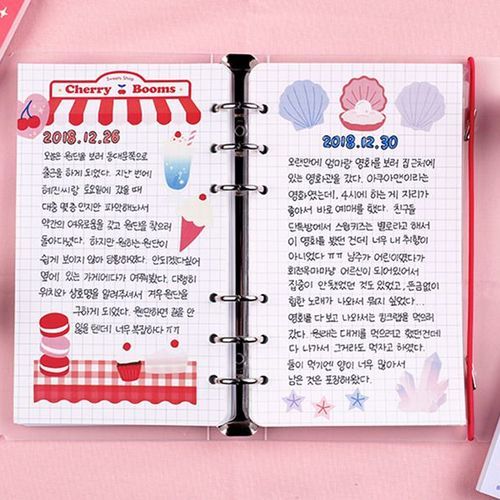 Sweets Shop
Cherry Booms
2018.12.26
오늘은 원단을 보러 동대문쪽으로
출근을 하게 되었다. 지난 번에
혜진씨랑 토요일에 갔을 때
대충 몇 층인지만 파악해놔서
약간의 여유로움을 갖고 원단을 찾으러
돌아다녔다. 하지만 원하는 원단이
쉽게 보이지 않아 당황하였다. 안되겠다싶어
옆에 있는 가게에다가 여쭤봤다. 다행히
위치와 상호명을 알려주셔서 겨우 원단을
구하게 되었다. 원단하면 길을 안
잃을 텐데 너무 복잡하다 ㅠㅠ
2018.12.30
오랜만에 엄마랑 영화를 보러 집 근처에
있는 영화관을 갔다. 아쿠아맨이라는
영화였는데, 4시에 하는 게 자리가
좋아서 바로 예매를 했다. 친구들
단톡방에서 스윙키즈는 별로라고 해서
이 영화를 봤던 건데 너무 내 취향이
아니었다 ㅠㅠ 남주가 어린이였다가
회전목마마냥 어른신이 되어있어서
집중이 안 됐었던 것도 있었고, 뜬금없이
힙한 노래가 나와서 뭐지 싶었다...
영화를 다 보고 나와서는 킹크랩을 먹으러
갔다. 원래는 대게를 먹으려고 했던건데
다 나가서 그거라도 먹자고 하였다.
둘이 먹기엔 양이 너무 많아서
남은 것은 포장해왔다.